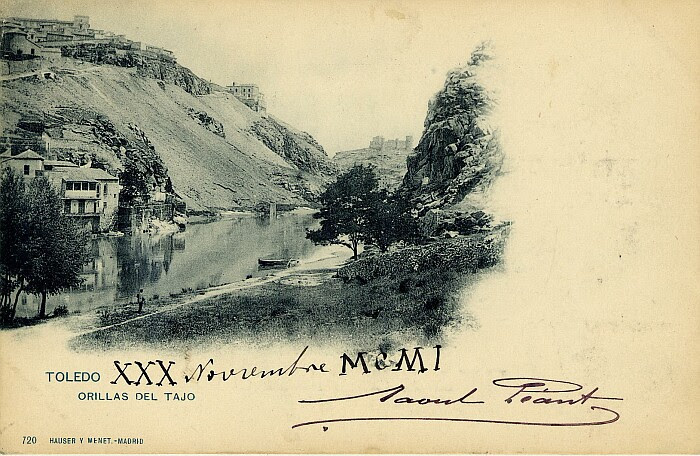 TOLEDO XXX Novembre MCMI
ORILLAS DEL TAJO
Raoul
720 HAUSER Y MENET.-MADRID